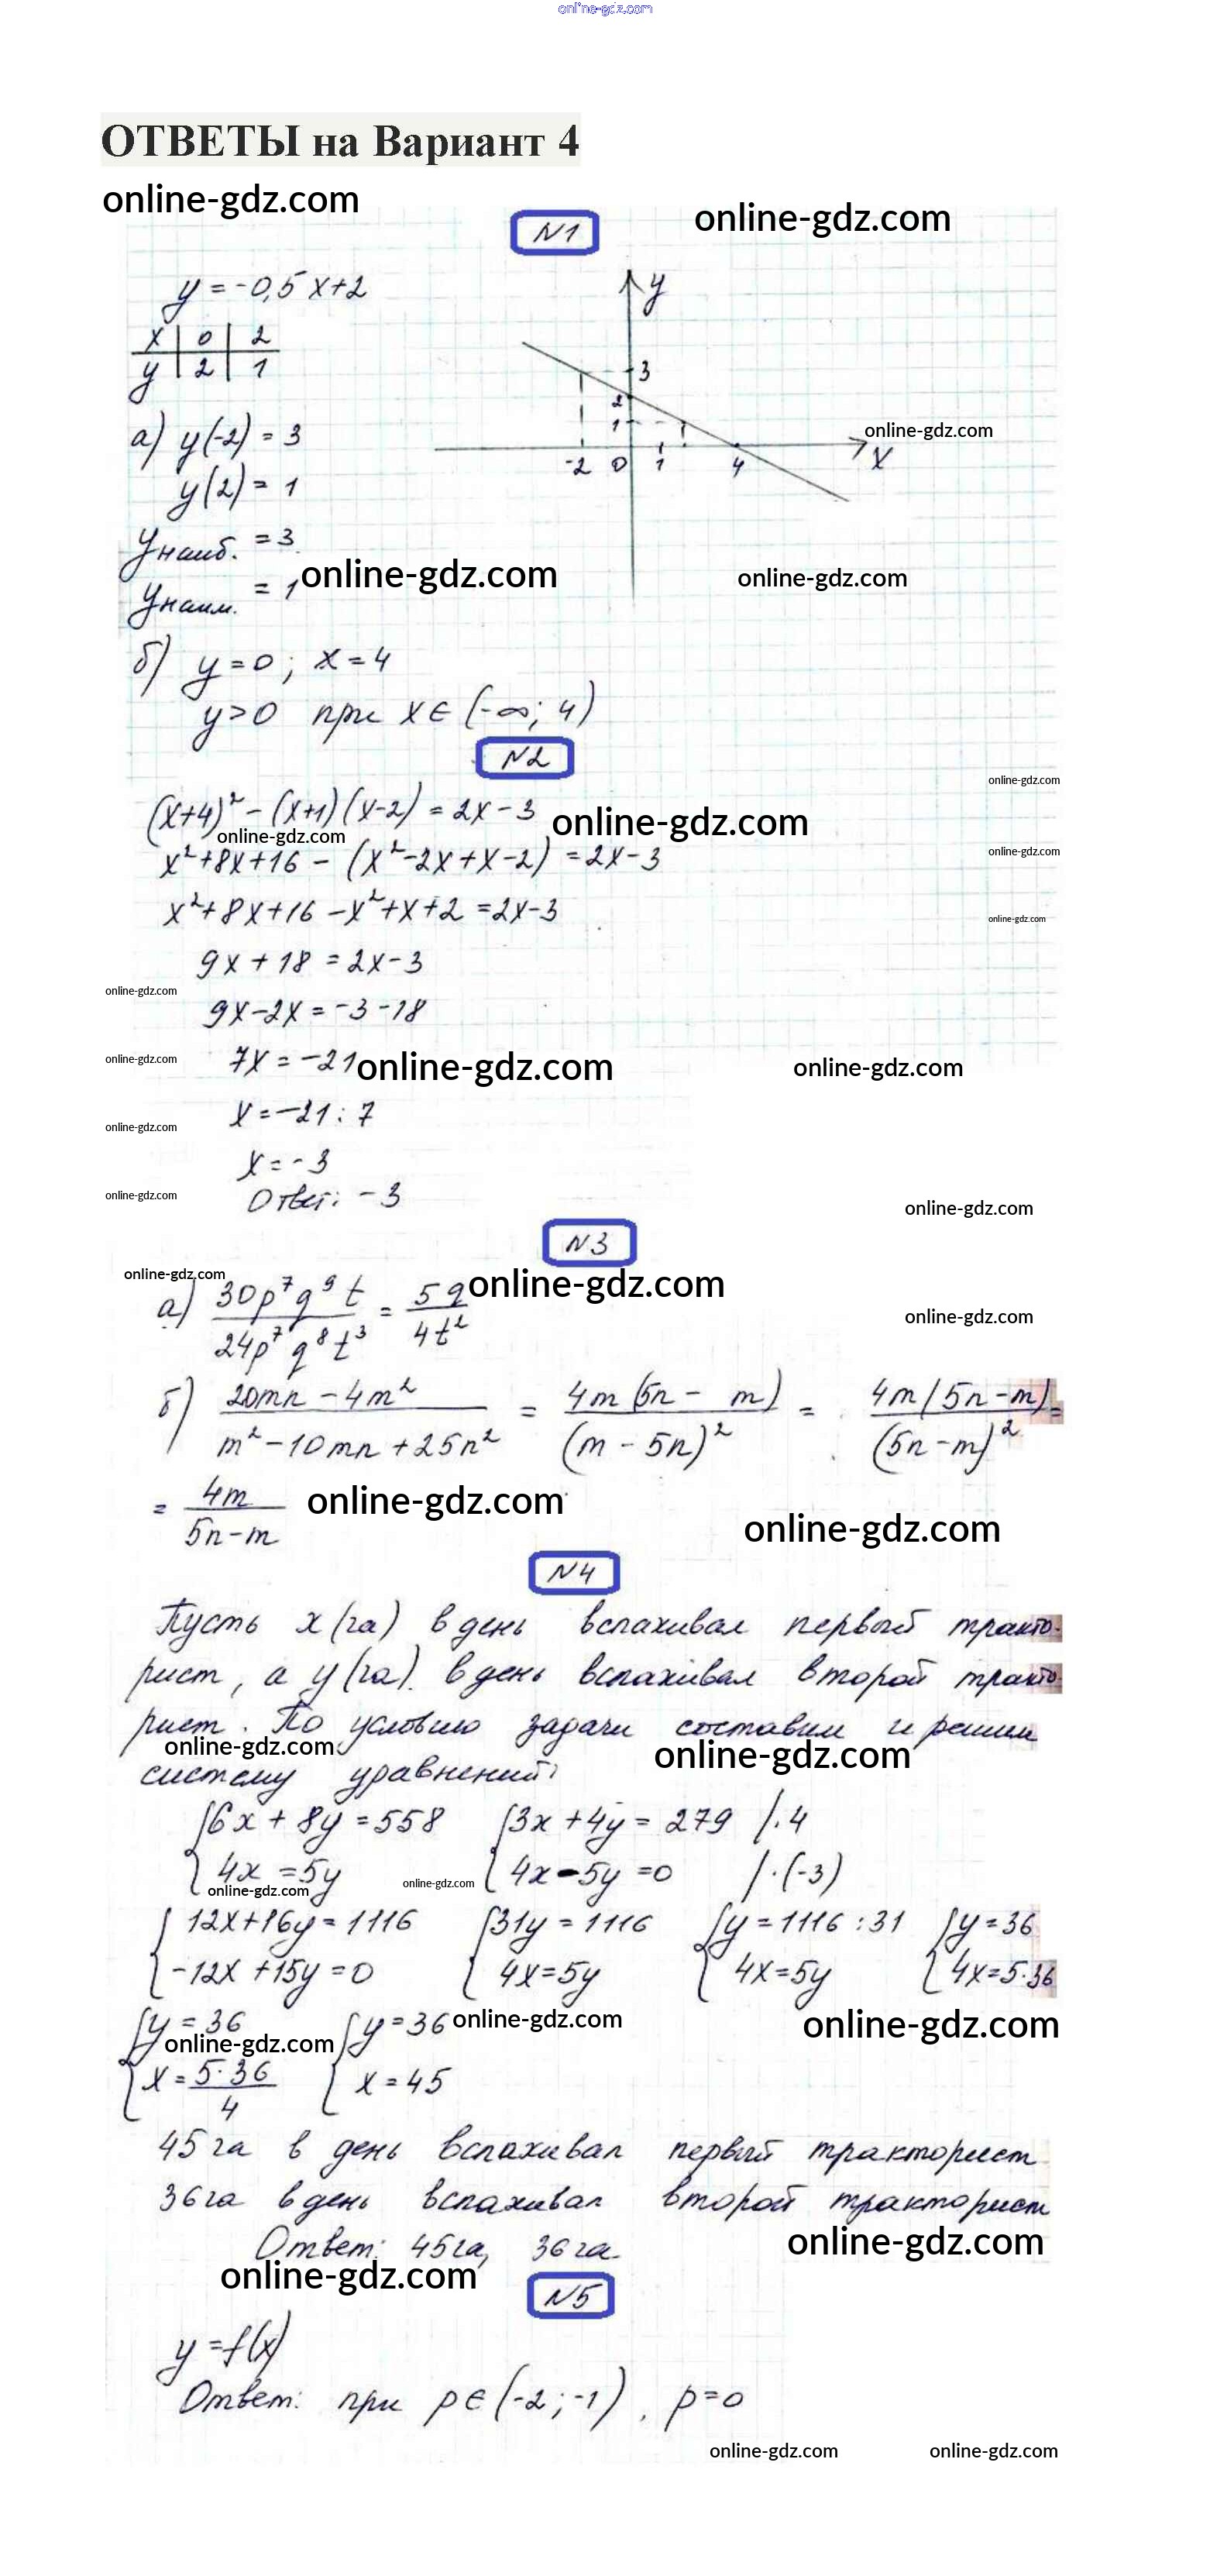 online-gdz.com
ОТВЕТЫ на Вариант 4
online-gdz.com
online-gdz.com
N1
y = -0,5x+2
x | 0 | 2
y | 2 | 1
y
3
2
1
-2 0 1 4 x
online-gdz.com
а) y(-2) = 3
y(2) = 1
yнаиб. = 3
yнаим. = 1
online-gdz.com
online-gdz.com
б) y=0; x=4
y>0 при x∈(-∞; 4)
N2
online-gdz.com
(x+4)² - (x+1)(x-2) = 2x-3
online-gdz.com
online-gdz.com
x²+8x+16 - (x²-2x+x-2) = 2x-3
online-gdz.com
x²+8x+16 -x²+x+2 = 2x-3
online-gdz.com
9x + 18 = 2x-3
online-gdz.com
9x-2x = -3-18
online-gdz.com
7x = -21
online-gdz.com
online-gdz.com
x = -21 : 7
online-gdz.com
x = -3
Ответ: -3
online-gdz.com
online-gdz.com
N3
online-gdz.com
online-gdz.com
online-gdz.com
а) 30p⁷q⁹t / 24p⁷q⁸t³ = 5q / 4t²
б) 20mn - 4m² / m²-10mn+25n² = 4m(5n - m) / (m - 5n)² = 4m(5n-m) / (5n-m)² =
= 4m / 5n-m
online-gdz.com
online-gdz.com
N4
Пусть x (га) в день вспахивал первый тракто-
рист, а y (га) в день вспахивал второй тракто-
рист. По условию задачи составим и решим
online-gdz.com
online-gdz.com
систему уравнений:
{6x + 8y = 558 {3x + 4y = 279 |·4
{4x = 5y {4x-5y = 0 |·(-3)
online-gdz.com
online-gdz.com
{12x+16y = 1116 {31y = 1116 {y = 1116 : 31 {y = 36
{-12x + 15y = 0 {4x=5y {4x=5y {4x=5·36
{y = 36 {y = 36
online-gdz.com
online-gdz.com
online-gdz.com
{x = 5·36 / 4 {x = 45
45 га в день вспахивал первый тракторист
36 га в день вспахивал второй тракторист
Ответ: 45 га, 36 га.
online-gdz.com
online-gdz.com
N5
y = f(x)
Ответ: при p∈(-2; -1), p=0
online-gdz.com
online-gdz.com